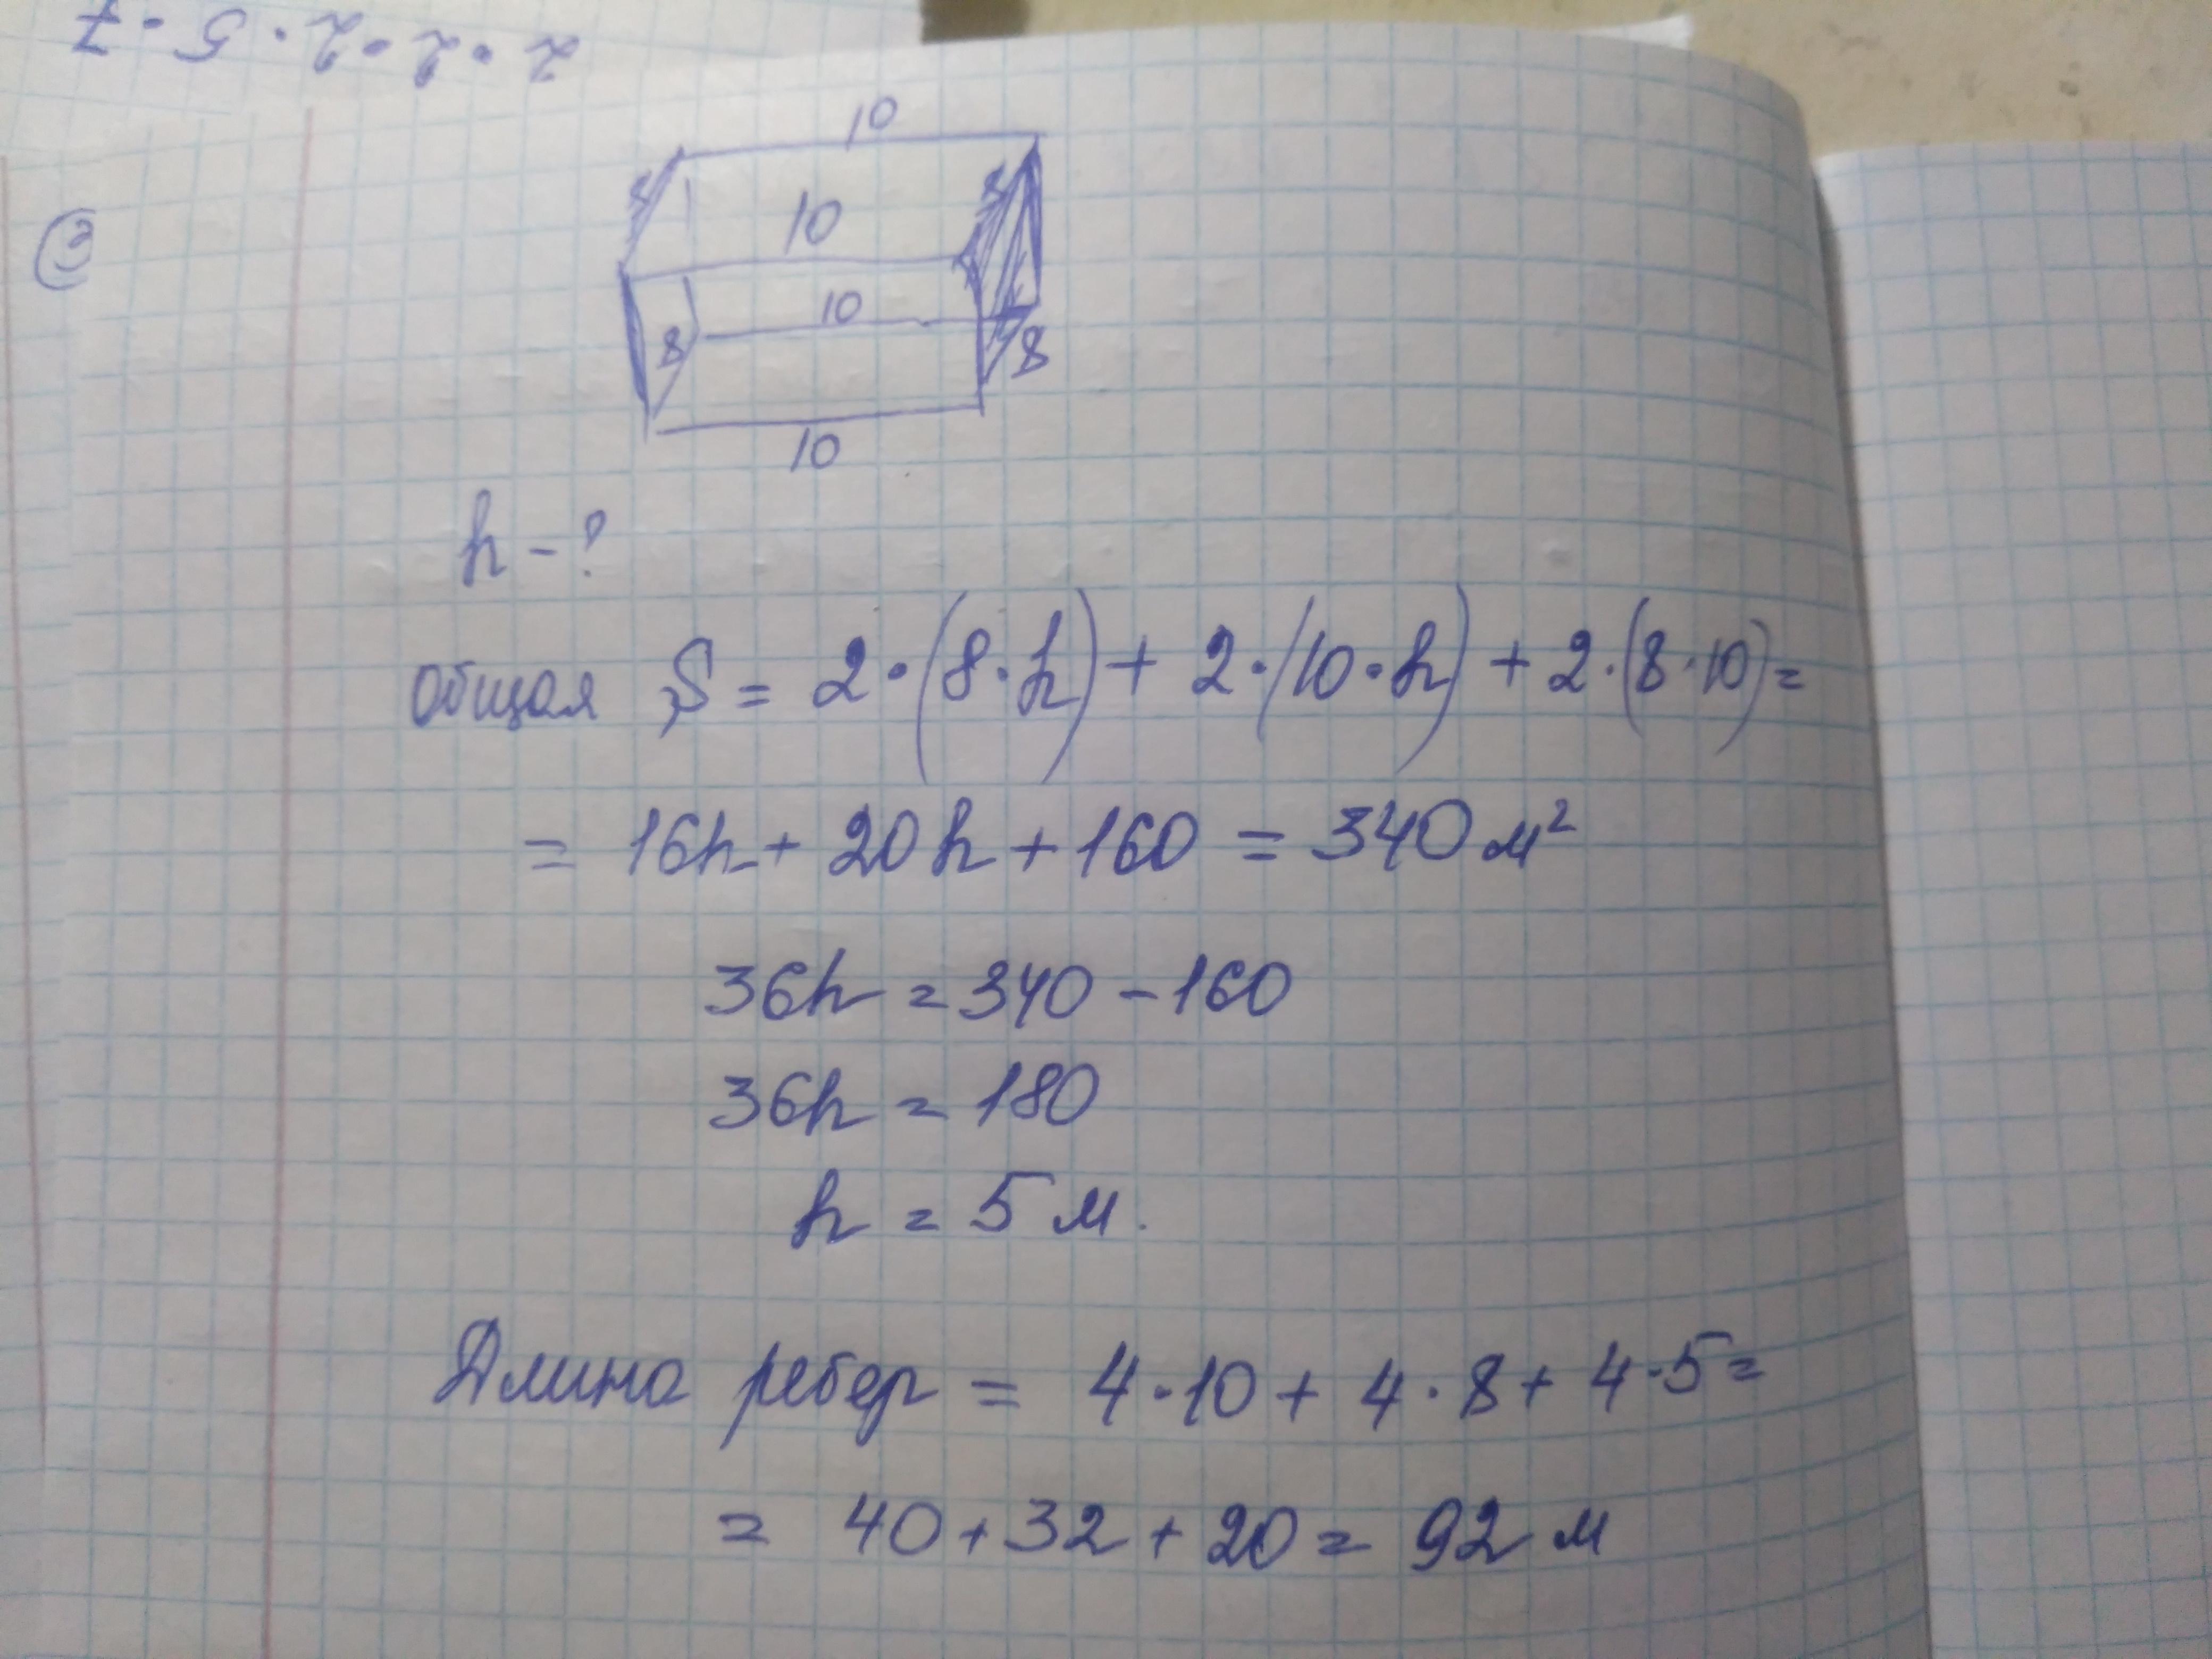 2 · 2 · 2 · 5 · 7
3
10
10
8
10
8
10
h - ?
общая S = 2·(8·h) + 2·(10·h) + 2·(8·10) =
= 16h + 20h + 160 = 340 м²
36h = 340 - 160
36h = 180
h = 5 м.
Длина ребер = 4·10 + 4·8 + 4·5 =
= 40 + 32 + 20 = 92 м